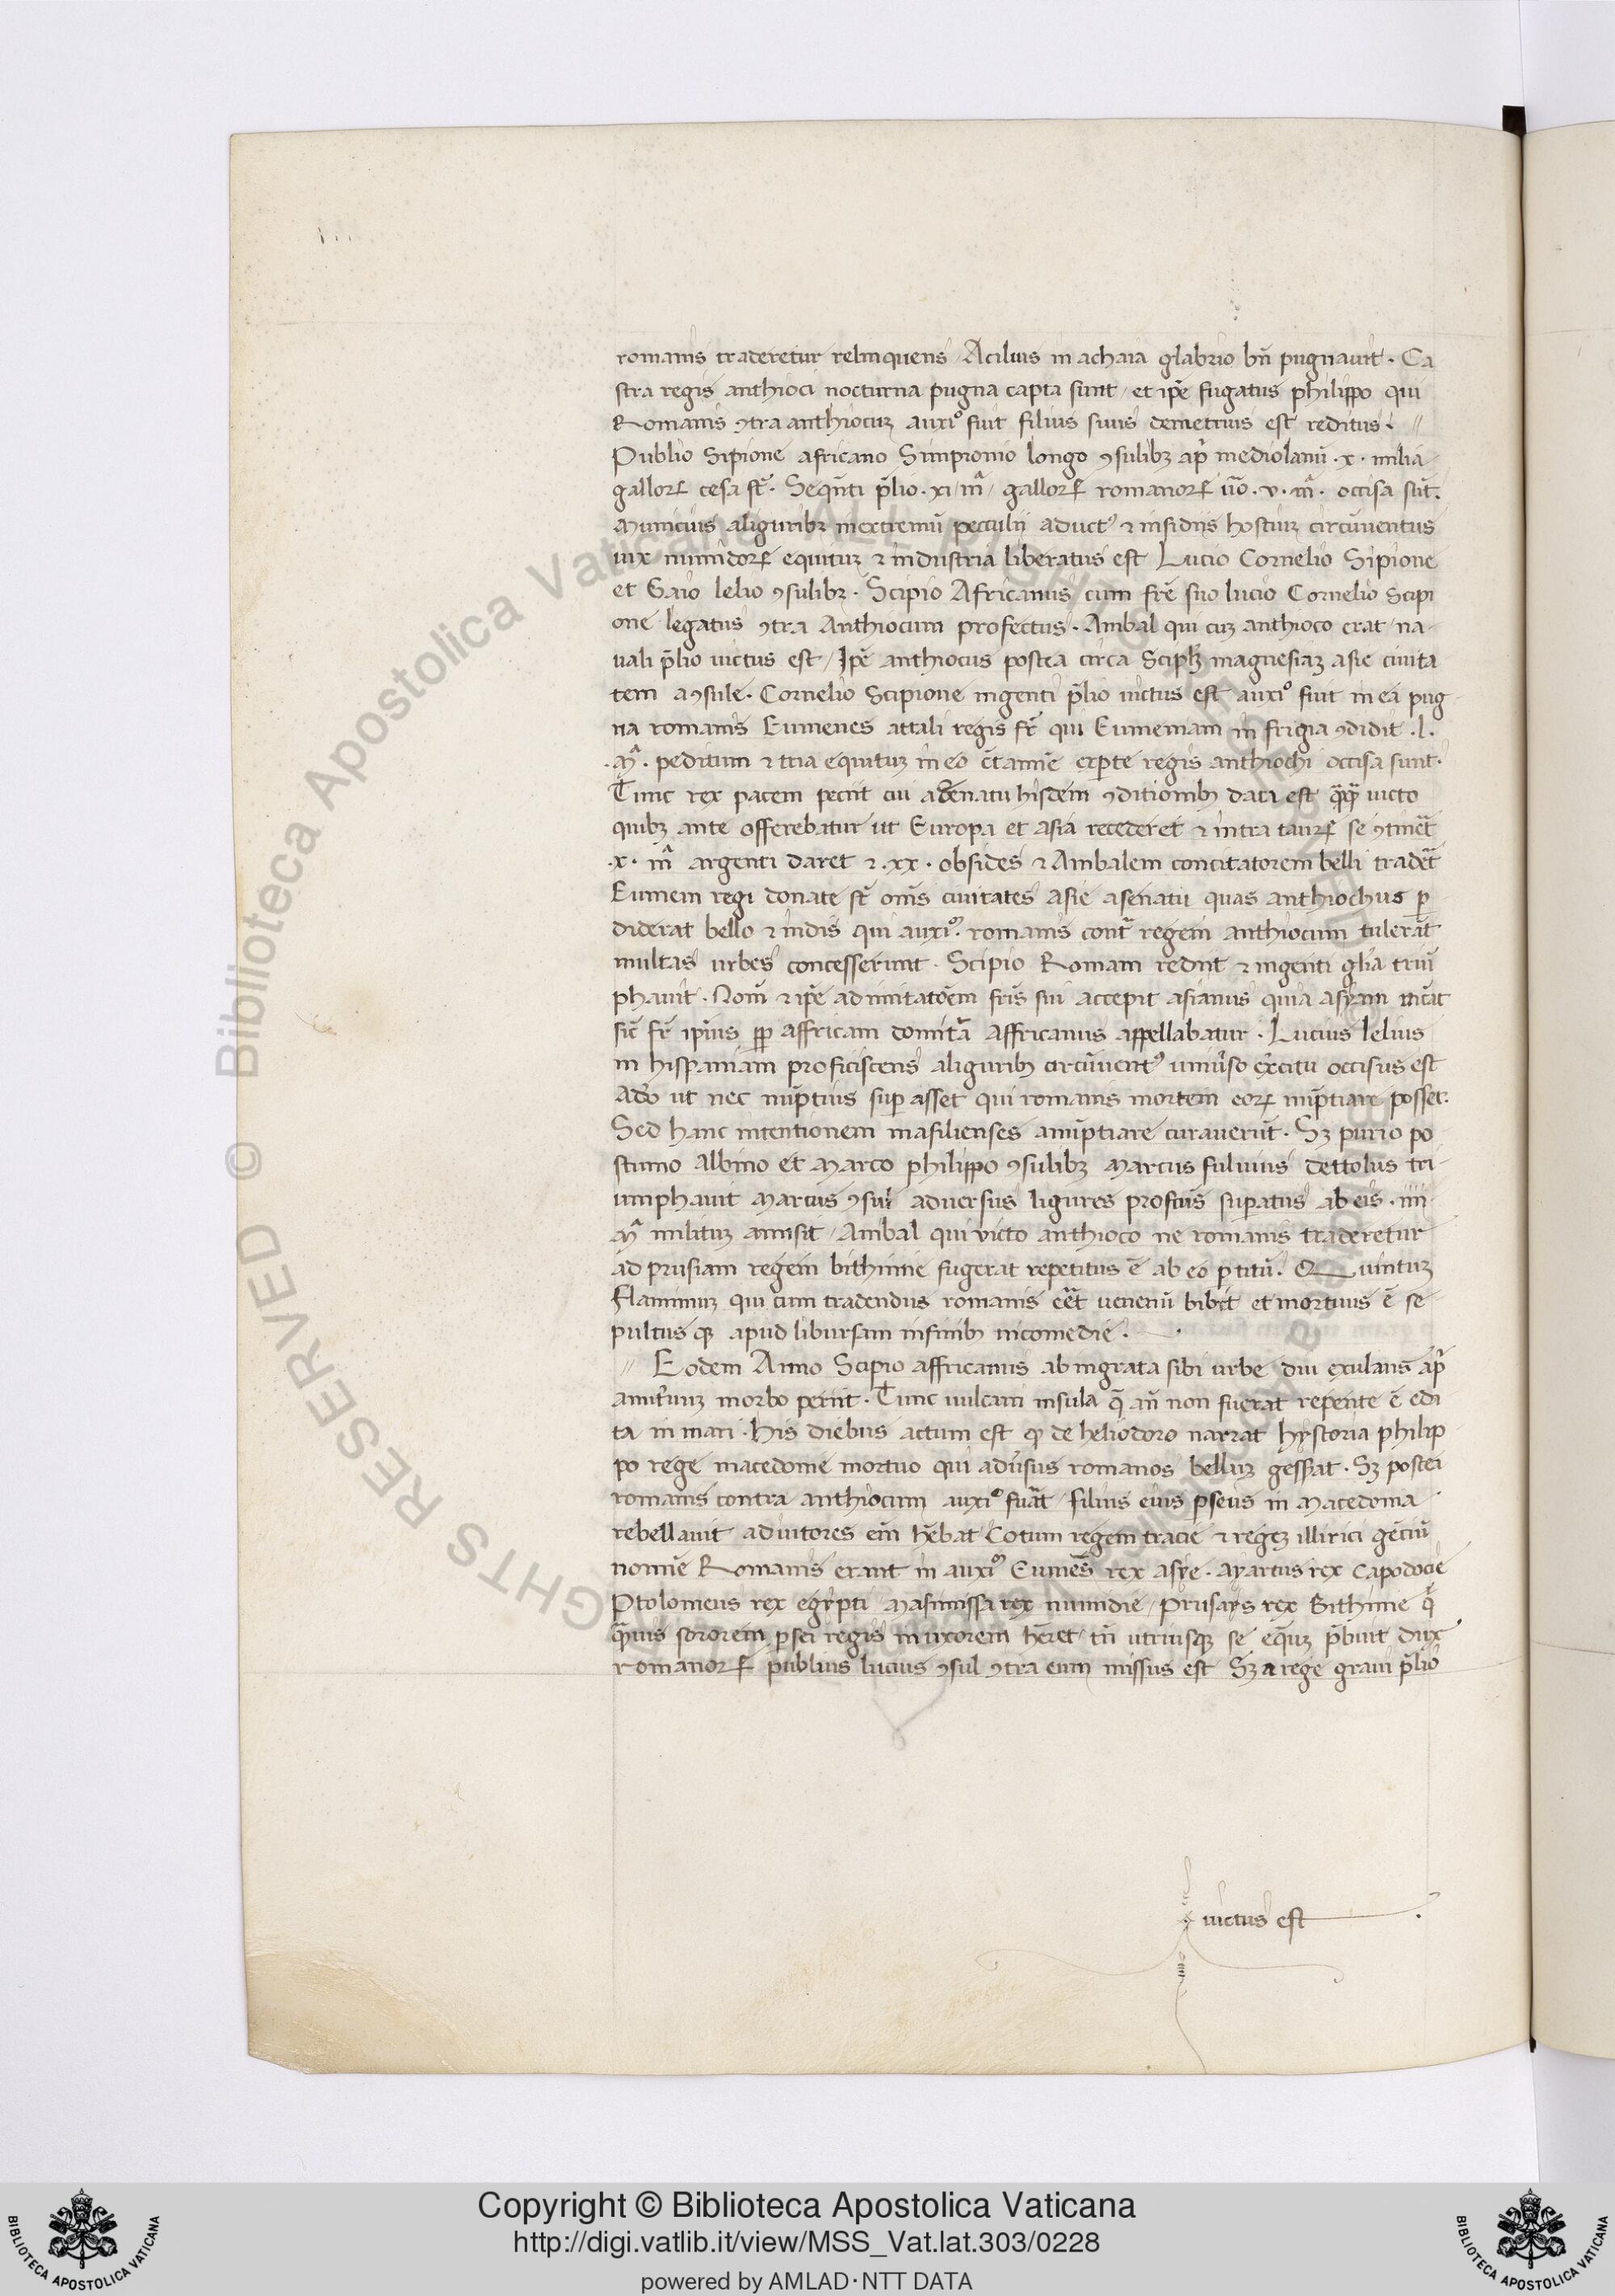 romanis traderetur relinquens / Acilius in achaia glabrio bn̄ pugnauit · Ca
stra regis anthioci nocturna pugna capta sunt / et ip̄e fugatus philippo qui
Romanis ꝯtra anthiocuꝫ auxiº fuit filius suus demetrius est reditus · //
Publio Sipione africano Simpronio longo ꝯsulibꝫ ap̄ mediolanū · x · milia
galloꝝ cesa st̄ · Seqn̄ti p̄lio · xi / m̄ / galloꝝ romanoꝝ ūo · v · m̄ · occisa sūt ·
Municius aliguribꝫ inextremū peculij aductꝰ ⁊ insidiis hostiuꝫ circūuentus
uix numidoꝝ equituꝫ ⁊ industria liberatus est Lucio Cornelio Sipione
et Gaio lelio ꝯsulibꝫ · Scipio Africanus cum fr̄e suo lucio Cornelio Scipi
one legatus ꝯtra Anthiocum profectus · Anibal qui cuꝫ anthioco erat / na
uali p̄lio uictus est / Ip̄e anthiocus postea circa magnesiaꝫ asie ciuita
tem aꝯsule · Cornelio Scipione ingenti p̄lio uictus est auxiº fuit in ea pug
na romanis Eumenes attali regis fr̄ qui Eumeniam in frigia ꝯdidit · l ·
· m̄ · peditum ⁊ tria equituꝫ in eo c̄tamīe exꝑte regis anthiochi occisa sunt ·
Tunc rex pacem peciit cui asenatu hisdem ꝯditionibꝫ data est uicto
quibꝫ ante offerebatur ut Europa et asia recederet ⁊ intra tauꝝ se ꝯtinēt
· x · m̄ argenti daret ⁊ · xx · obsides ⁊ Anibalem concitatorem belli tradēt
Eumem regi donate st̄ om̄s ciuitates asie asenatu quas anthiochus ꝑ
diderat bello ⁊ indis qui auxiº · romanis cont̄ regem anthiocum tulerāt
multas urbes concesserunt · Scipio Romam rediit ⁊ ingenti gl̄ia triū
phauit · Nom̄ ⁊ ip̄e ad imitatōem fr̄is sui accepit asianus quia asyam uic̄at
sic̄ fr̄ ip̄ius ꝓp affricam domitā affricanus appellabatur · Lucius lelius
in hispaniam proficiscens aliguribꝫ circūuentꝰ uniūso exc̄itu occisus est
Adeo ut nec nūptius suꝑ asset qui romanis mortem eoꝝ nūptiare posset ·
Sed hanc intentionem masilienses anūptiare curauerūt · Sꝫ purio po
stumo Albino et Marco philippo ꝯsulibꝫ Marcus fuluius dettolus tri
umphauit Marcus ꝯsul aduersus ligures profcūs suꝑatus ab eis · iiii ·
m̄ milituꝫ amisit / Anibal qui victo anthioco ne romanis traderetur
ad prusiam regem bithinie fugerat repetitus ē ab eo ꝑtitū · Quintuꝫ
flaminiuꝫ qui cum tradendus romanis eēt uenenū bibit et mortuus ē se
pultus qꝫ apud libursam infinibꝫ nicomedie ·
// Eodem Anno Scipio affricanus ab ingrata sibi urbe diu exulans ap̄
amit̄nuꝫ morbo periit · Tunc uulcani insula q̄ an̄ non fuerat repente ē edi
ta in mari · his diebus actum est qꝫ de heliodoro narrat hystoria philip
po rege macedonie mortuo qui adūsus romanos belluꝫ gesserat · Sꝫ postea
romanis contra anthiocum auxiº fuāt / filius eius ꝑseus in Macedonia
rebellauit adiutores em̄ hēbat Cotum regem tracie ⁊ regeꝫ illirici gēciū
nomīe Romanis erant in auxiº Eumēs rex asye · ayartus rex capodocie
Ptolomeus rex egypti Masinissa rex numidie / Prusays rex Bithinie q̄
q̄uis sororem ꝑsei regis in uxorem hēret / tn̄ utriusqꝫ se equꝫ p̄buit dux
romanoꝝ publius lucius ꝯsul ꝯtra eum missus est Sꝫ a rege graui p̄lio
uictus est
Copyright © Biblioteca Apostolica Vaticana
http://digi.vatlib.it/view/MSS_Vat.lat.303/0228
powered by AMLAD·NTT DATA
BIBLIOTECA APOSTOLICA VATICANA
BIBLIOTECA APOSTOLICA VATICANA